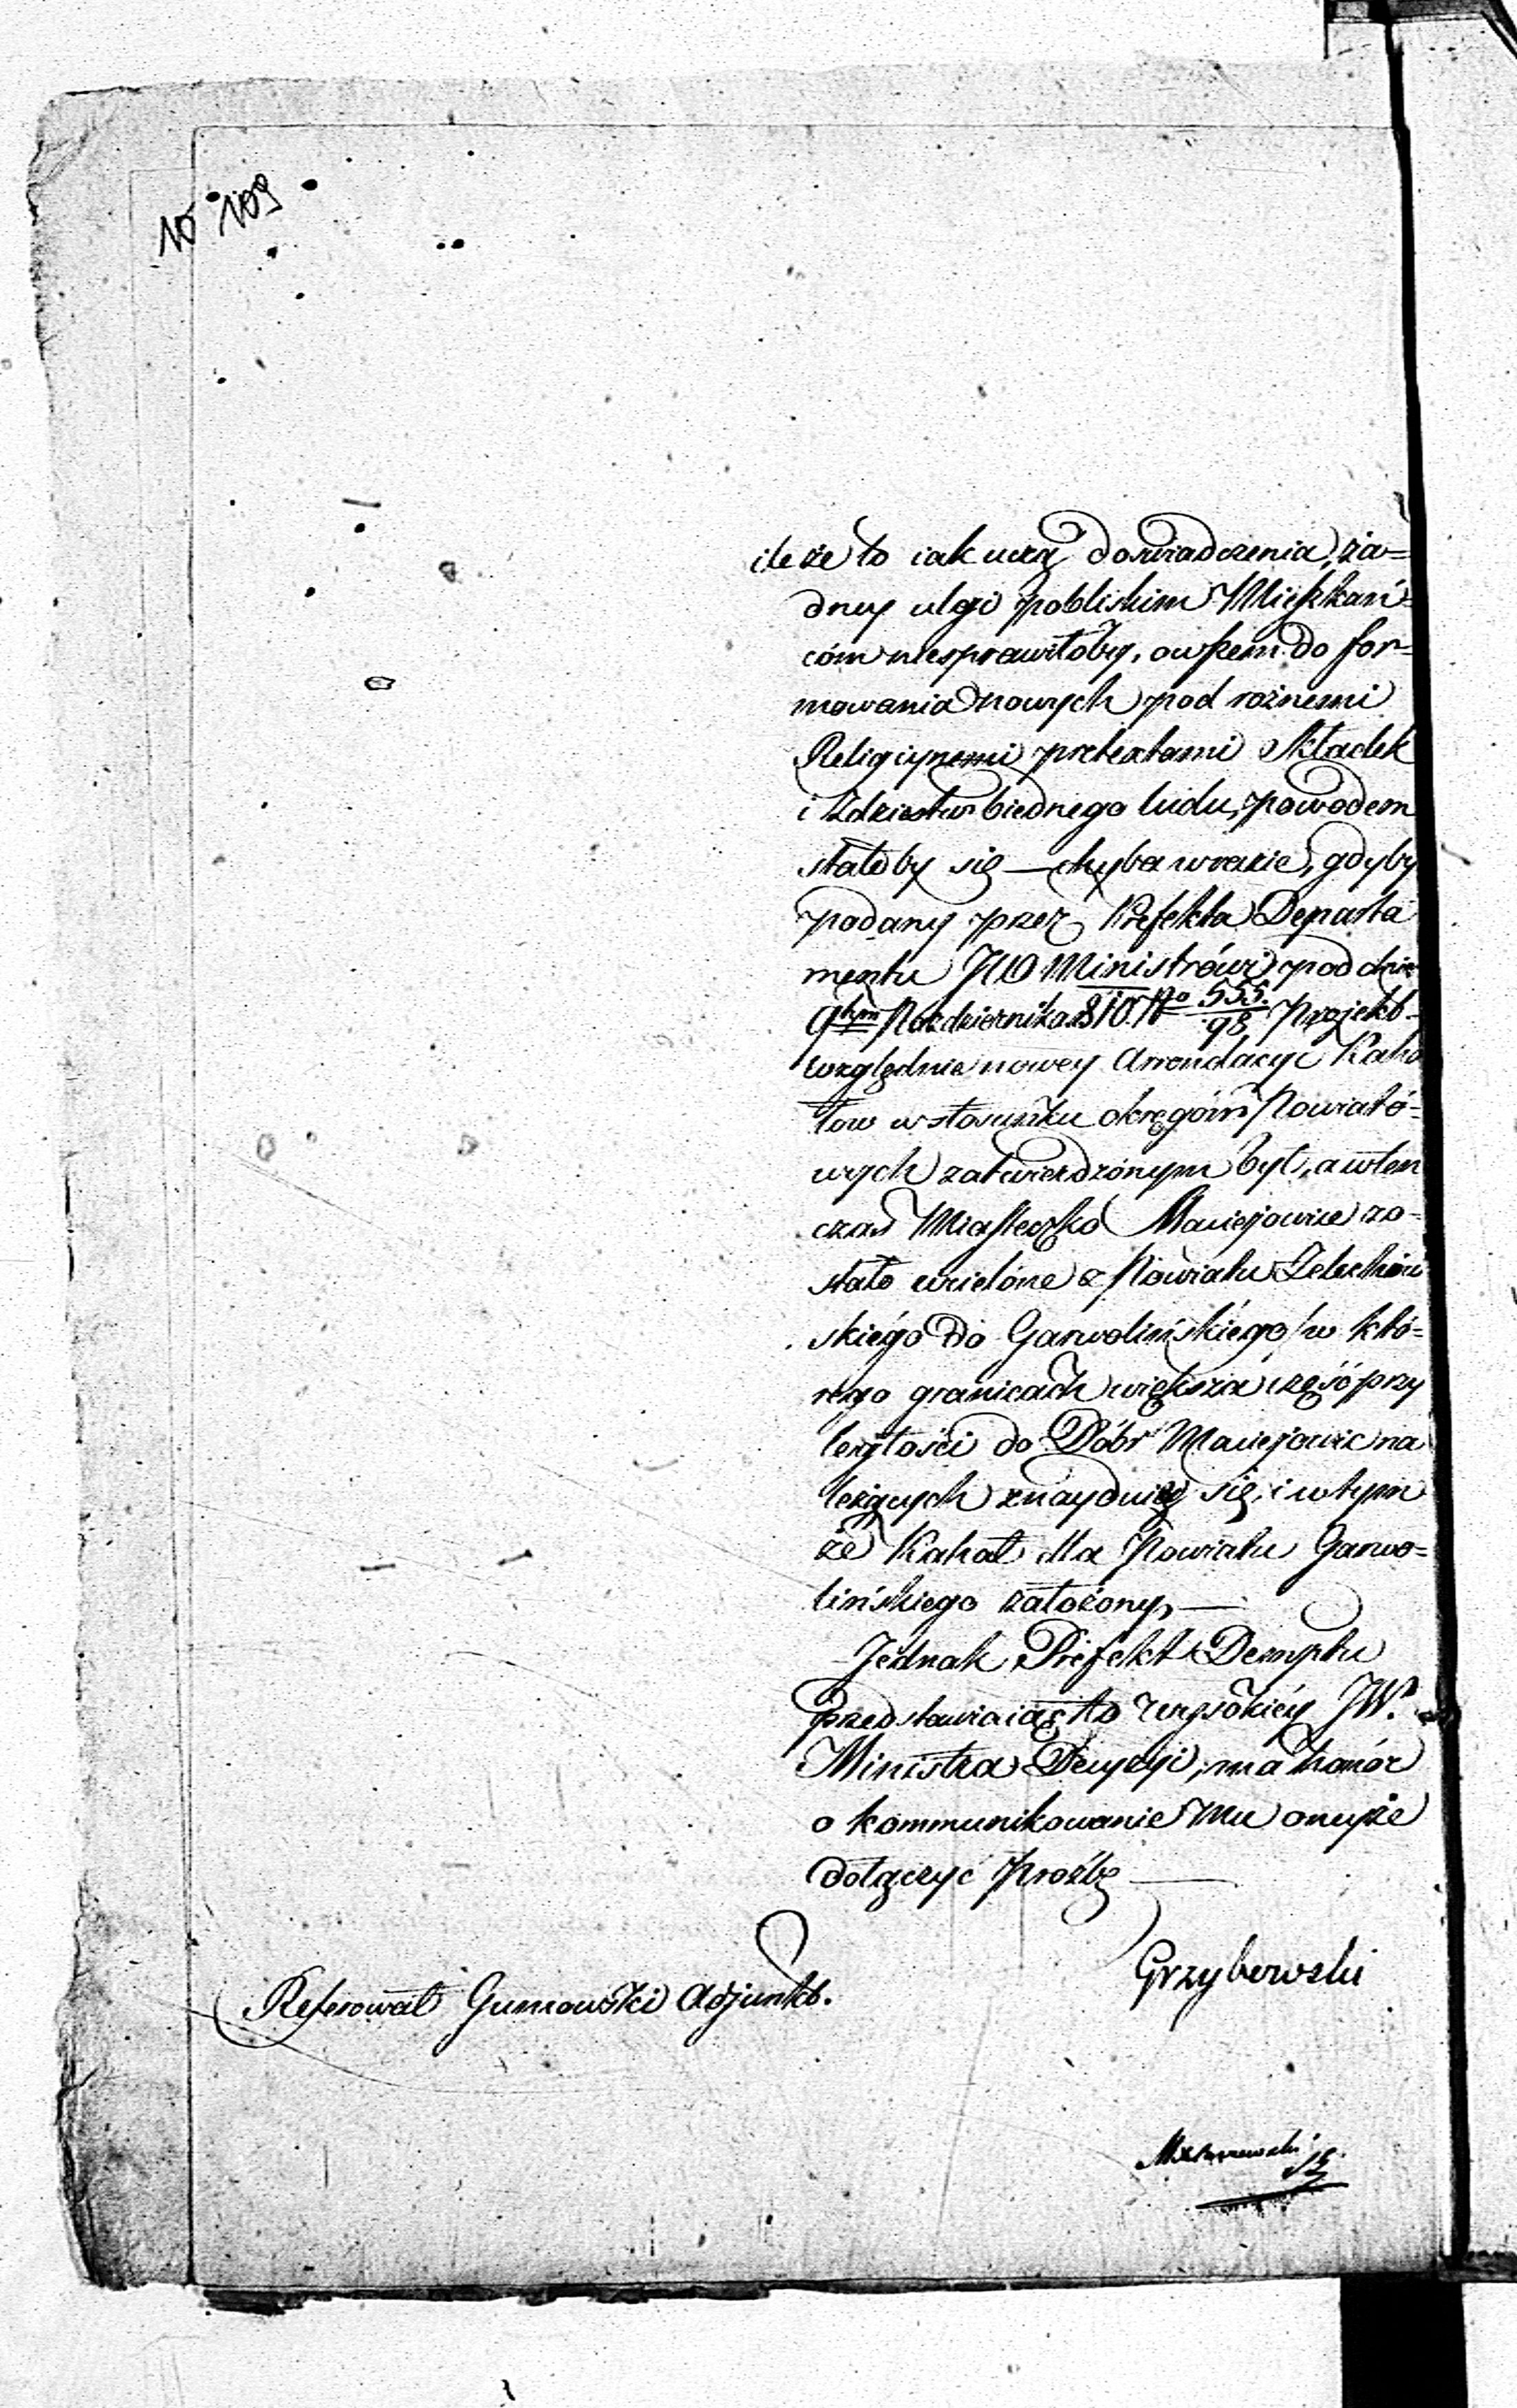 10 109
ile że to iak uczą doswiadczenia, ża=
dney ulgi pobliskim Mieszkań=
cóm niesprawiłoby, owszem do for=
mowania nowych pod rożnemi
Religiynemi pretextami Składek
i Zdzierstw biednego ludu, powodem
stałoby się — chyba w razie, gdyby
podany przez Prefekta Departa
mentu JW Ministrówi pod dniem
9tym Pazdziernika 810. No 555./98 Projekt
względnie nowey Arrondacyi Kaha
łow w stosunku okręgów Powiató=
wych zatwierdzónym był, a wten
czas Miasteczko Maciejowice zo=
stało wcielóne z Powiatu Zelechów
skiégo do Garwolińskiégo /w któ=
rego granicach większa częśc przy
ległości do Dóbr Maciejowic na
leżących znayduie się, i w tym
że Kahał dla Powiatu Garwo=
lińskiego założony, —
Jednak Prefekt Demptu
przedstawiaiąc to wysokiéy JW.
Ministra Decyzyi, ma honór
o kommunikowanie Mu oneyże
dołączyć prożbę —
Grzybowski
Referował Gumowski Adjunkt.